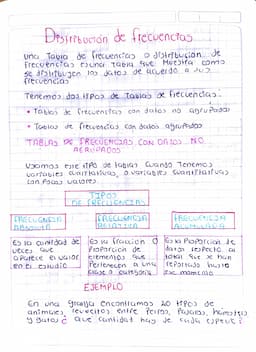 Distribución de frecuencias
Una Tabla de frecuencias o distribución de
frecuencias es una tabla que muestra como
se distribuyen los datos de acuerdo a sus
frecuencias
Tenemos dos tipos de Tablas de frecuencias:
• Tablas de frecuencias con datos no agrupados
• Tablas de frecuencias con datos agrupados
TABLAS DE FRECUENCIAS CON DATOS NO
AGRUPADOS
Usamos este tipo de tablas cuando tenemos
variables cualitativas, o variables cuantitativas
con pocos valores
TIPOS
DE FRECUENCIAS
FRECUENCIA
ABSOLUTA
Es la cantidad de
veces que
aparece el valor
en el estudio
FRECUENCIA
RELATIVA
Es la fracción o
Proporción de
elementos que
Pertenecen a una
clase o categoría
FRECUENCIA
ACUMULADA
Es la Proporción de
datos respecto al
total que se han
reportado hasta
ese momento
EJEMPLO
En una granja encontramos 20 tipos de
animales, revueltos entre Perros, Pájaros, hámsters
y gatos ¿ que cantidad hay de cada especie?